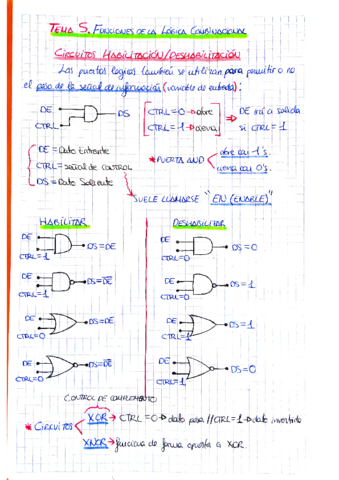 TEMA 5. FUNCIONES DE LA LÓGICA COMBINACIONAL
CIRCUITOS HABILITACIÓN/DESHABILITACIÓN
Las puertas lógicas también se utilizan para permitir o no
el paso de la señal de información (variable de entrada):
DE
CTRL
DS
CTRL = 0 → abre
CTRL = 1 → cierra
DE irá a salida
si CTRL = 1
DE = Dato Entrante
CTRL = señal de CONTROL
DS = Dato Saliente
* PUERTA AND
abre con 1's.
cierra con 0's.
SUELE LLAMARSE "EN (ENABLE)"
HABILITAR
DESHABILITAR
DE
CTRL=1
DS=DE
DE
CTRL=0
DS=0
DE
CTRL=1
DS=DE
DE
CTRL=0
DS=1
DE
CTRL=0
DS=DE
DE
CTRL=1
DS=1
DE
CTRL=0
DS=DE
DE
CTRL=1
DS=0
CONTROL DE COMPLEMENTO
* CIRCUITOS
XOR → CTRL = 0 → dato pasa // CTRL = 1 → dato invertido
XNOR → funciona de forma opuesta a XOR.